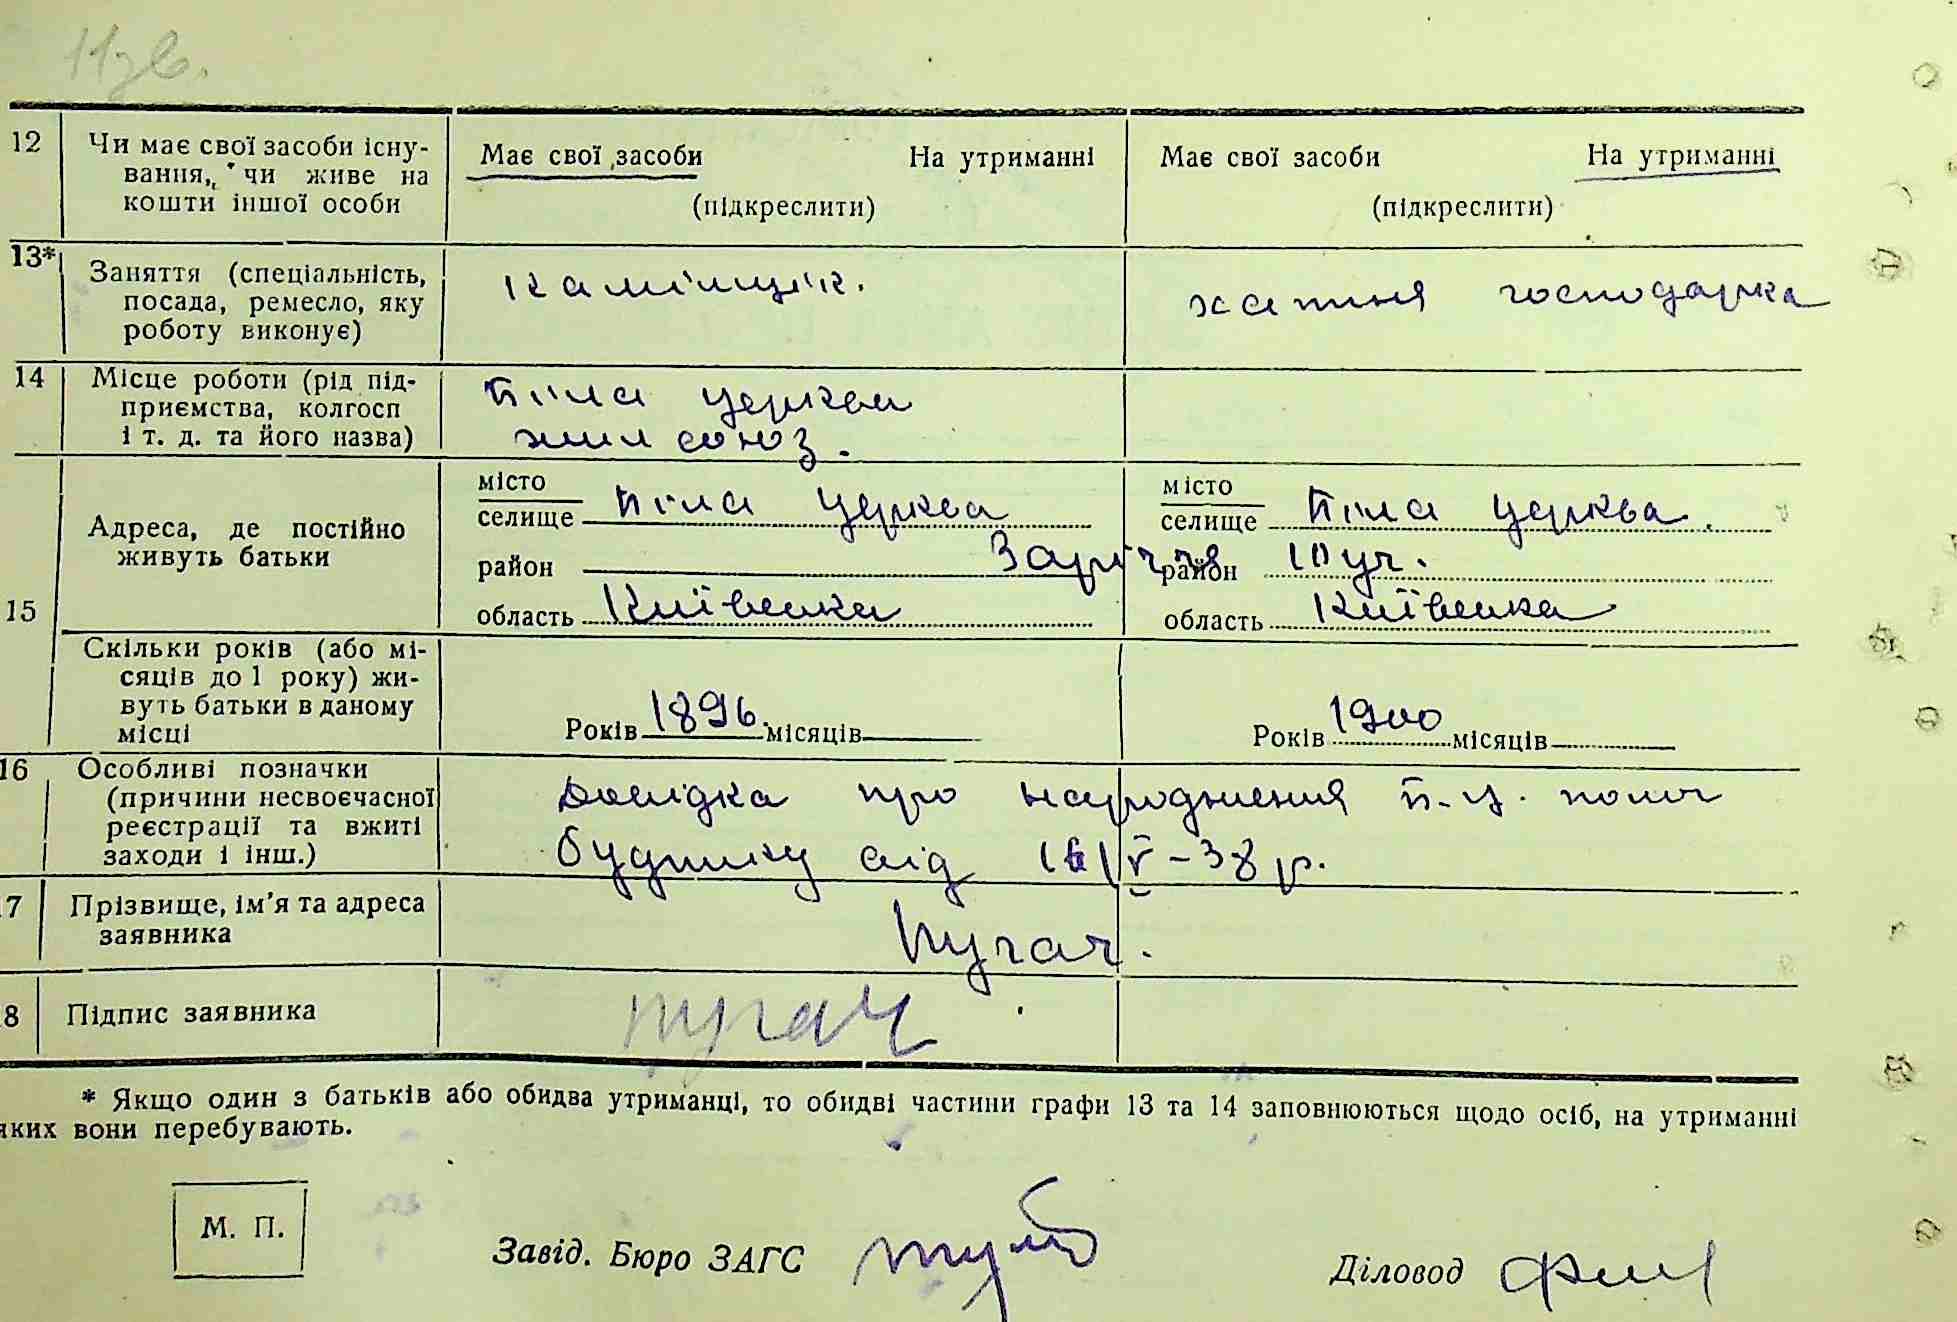 11зв.
12
Чи має свої засоби існу-
вання, чи живе на
кошти іншої особи
Має свої засоби На утриманні
(підкреслити)
Має свої засоби На утриманні
(підкреслити)
13*
Заняття (спеціальність,
посада, ремесло, яку
роботу виконує)
камінщік.
хатня господарка
14
Місце роботи (рід під-
приємства, колгосп
і т. д. та його назва)
Біла церква
жилсоюз.
15
Адреса, де постійно
живуть батьки
місто
селище Біла церква
район Заріччя
область Київська
місто
селище Біла церква.
район 10 уч.
область Київська
Скільки років (або мі-
сяців до 1 року) жи-
вуть батьки в даному
місці
Років 1896. місяців
Років 1900 місяців
16
Особливі позначки
(причини несвоєчасної
реєстрації та вжиті
заходи і інш.)
Довідка про народження Б.-Ц. полог
будинку від V-38 р.
7
Прізвище, ім'я та адреса
заявника
Пугач.
8
Підпис заявника
Пугач
* Якщо один з батьків або обидва утриманці, то обидві частини графи 13 та 14 заповнюються щодо осіб, на утриманні
яких вони перебувають.
М. П.
Завід. Бюро ЗАГС
Діловод